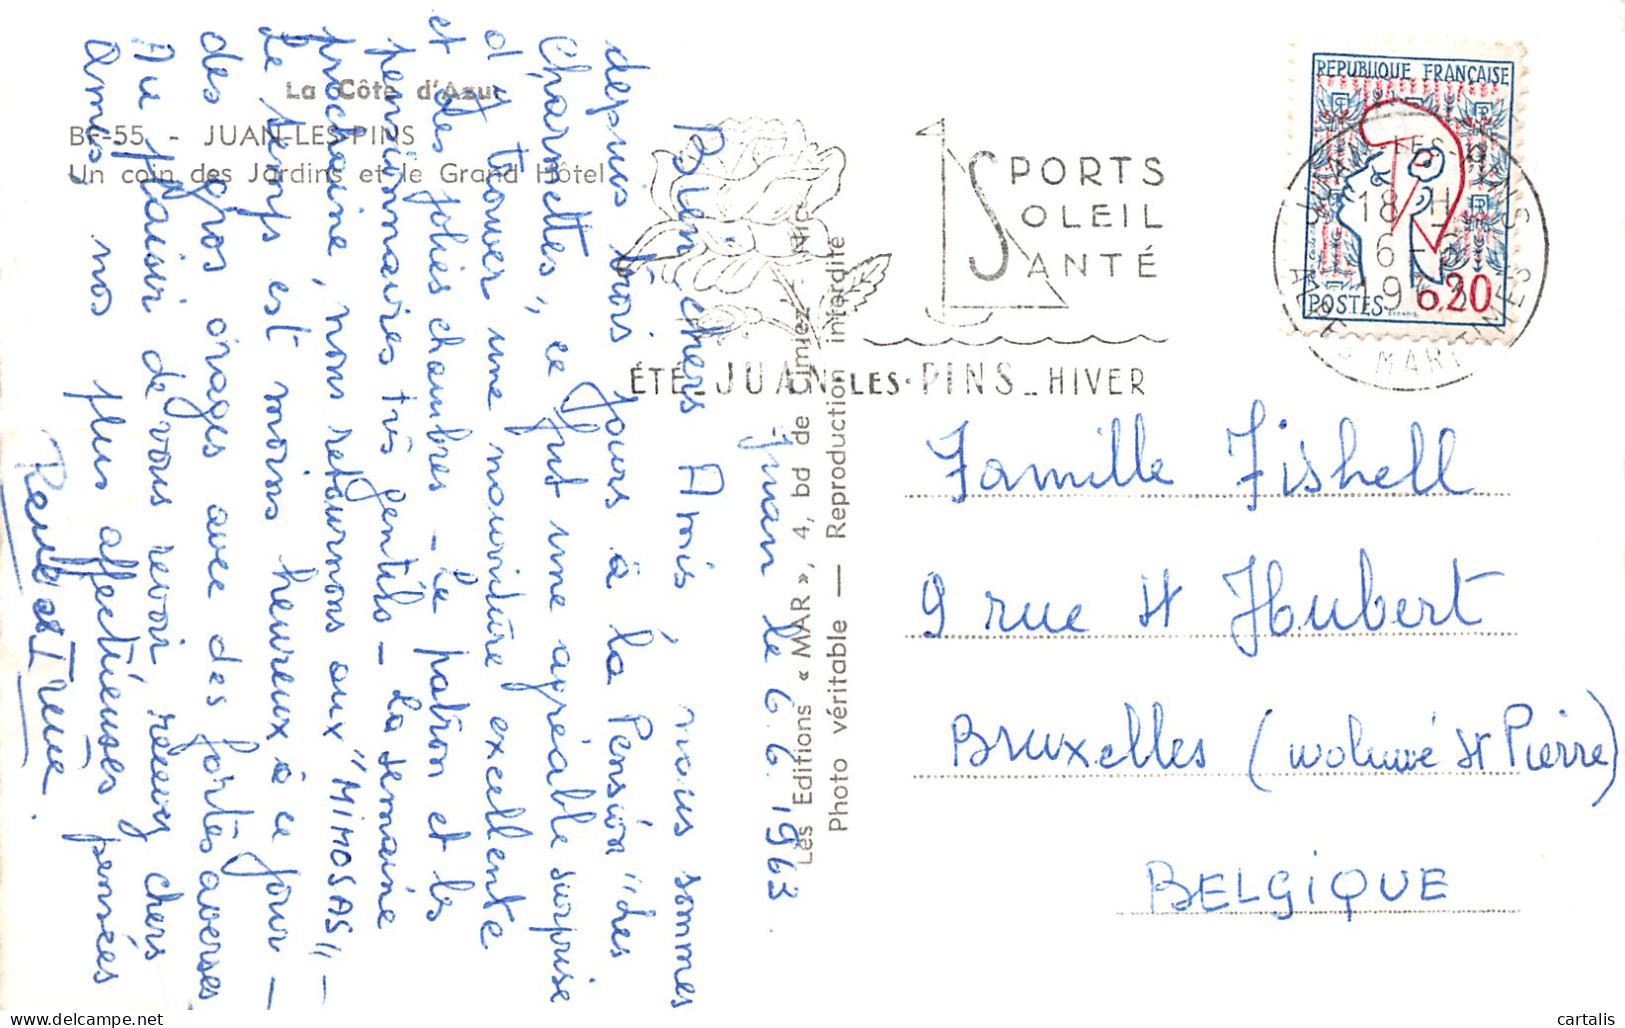 La Côte d'Azur
BF-55 - JUAN-LES-PINS
Un coin des Jardins et le Grand Hôtel
Juan le 6.6.1963.
Bien chers Amis, nous sommes
depuis trois jours à la Pension "des
Charmettes", ce fut une agréable surprise
d'y trouver une nourriture excellente
et des jolies chambres - Le patron et les
pensionnaires très gentils - La semaine
prochaine, nous retournons aux "MIMOSAS" -
Le temps est moins heureux à ce jour -
des gros orages avec des fortes averses
Au plaisir de vous revoir, recevez chers
Amis nos plus affectueuses pensées
et Irène.
Les Editions « MAR », 4, bd de Cimiez - Nice
Photo véritable — Reproduction interdite
SPORTS
SOLEIL
SANTÉ
ÉTÉ - JUAN-LES-PINS - HIVER
REPUBLIQUE FRANÇAISE
POSTES 0,20
JUAN-LES-PINS
18 H
6 - 6
1963
ALPES MARITIMES
Famille Fishell
9 rue St Hubert
Bruxelles (Woluwé St Pierre)
BELGIQUE
cartalis